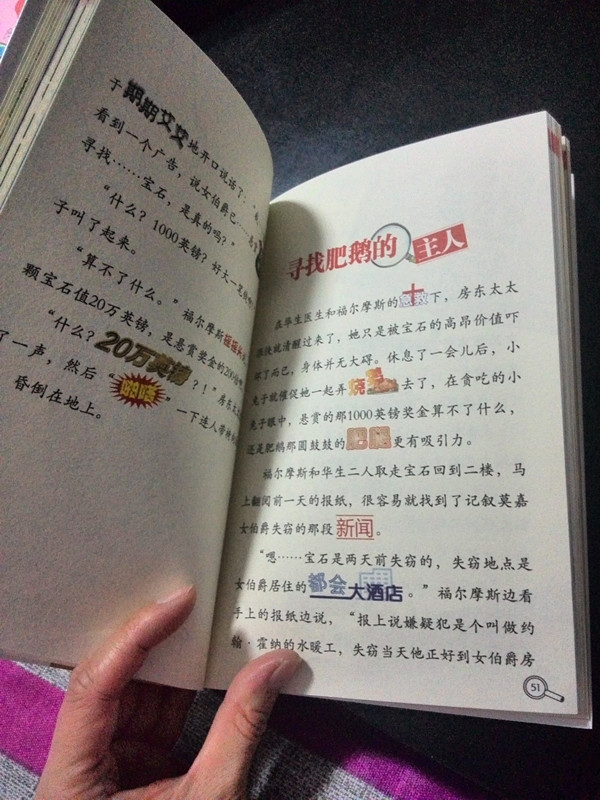 于期期艾艾地开口说话了：
看到一个广告，说女伯爵已
寻找……宝石，是真的吗？”
“什么？1000英镑？好大一笔
子叫了起来。
“算不了什么。”福尔摩斯摇摇头
颗宝石值20万英镑，是悬赏奖金的200
“什么？20万英镑？！”房东太
了一声，然后“”一下连人带椅
昏倒在地上。
寻找肥鹅的主人
在华生医生和福尔摩斯的急救下，房东太太
很快就清醒过来了，她只是被宝石的高昂价值吓
坏了而已，身体并无大碍。休息了一会儿后，小
兔子就催促她一起弄烧鹅去了，在贪吃的小
兔子眼中，悬赏的那1000英镑奖金算不了什么，
还是肥鹅那圆鼓鼓的肥肥更有吸引力。
福尔摩斯和华生二人取走宝石回到二楼，马
上翻阅前一天的报纸，很容易就找到了记叙莫嘉
女伯爵失窃的那段新闻。
“嗯……宝石是两天前失窃的，失窃地点是
女伯爵居住的都会大酒店。”福尔摩斯边看
手上的报纸边说，“报上说嫌疑犯是个叫做约
翰·霍纳的水暖工，失窃当天他正好到女伯爵房
51